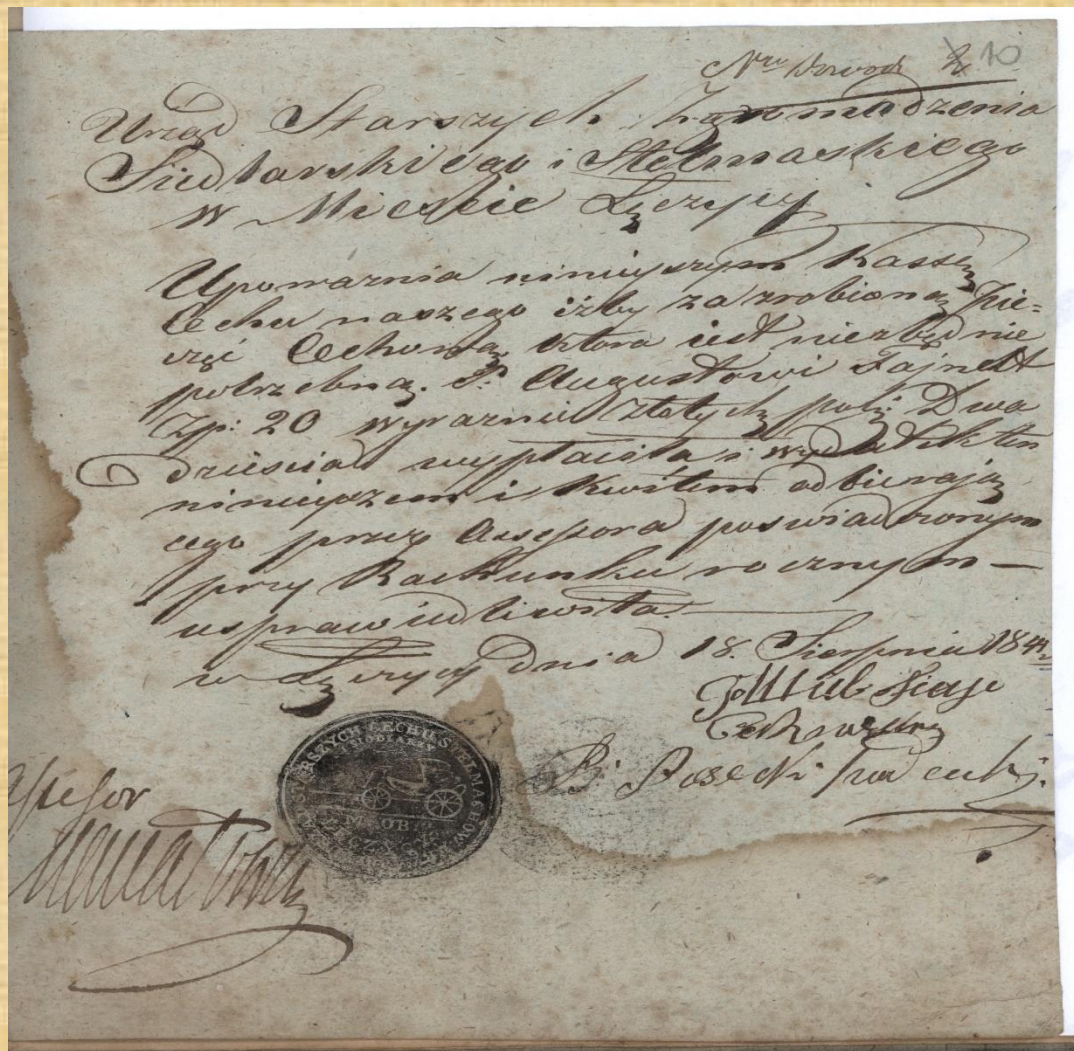 Nro Dowodu 2 10
Urząd Starszych Zgromadzenia
Siedlarskiego i Stelmaskiego
w Mieście Łęczycy
Upoważnia ninieyszym Kassę
Cechu naszego iżby za zrobioną Pie-
częć Cechową ktora iest niezbędnie
potrzebną. P. Augustowi
Zp: 20 wyraznie Złotych pols: Dwa
dziescia wypłaciła i wydatek ten
ninieyszem i Kwitem odbierają
cego przez Assesora poswiadczonym
przy Rachunku rocznym —
usprawiedliwiła.
w Łęczycy dnia 18. Sierpnia 184
Assesor
STARSZYCH CECHU STELMACHÓW
I SIODLARZY
M. OB